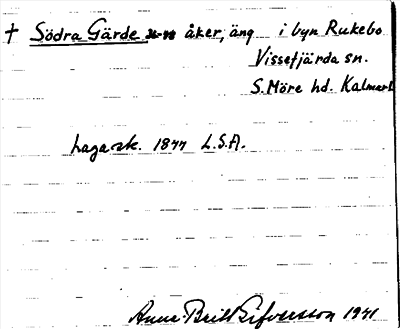 † Södra Gärde åker, äng i byn Rukebo
Vissefjärda sn.
S. Möre hd. Kalmar l
Lagask. 1877 L.S.A.
Anna-Britt Sifversson 1941